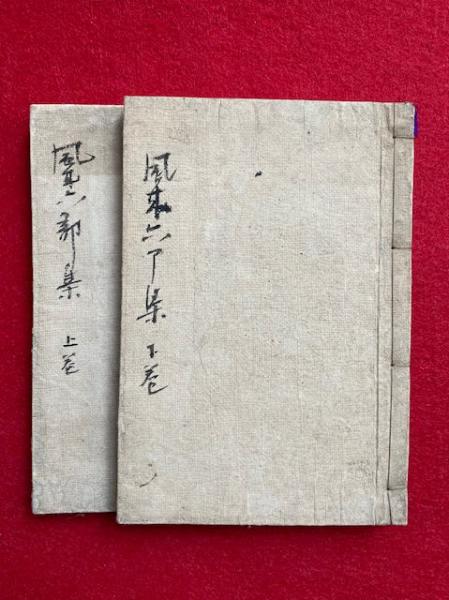 風来六部集 下巻
風来六部集 上巻